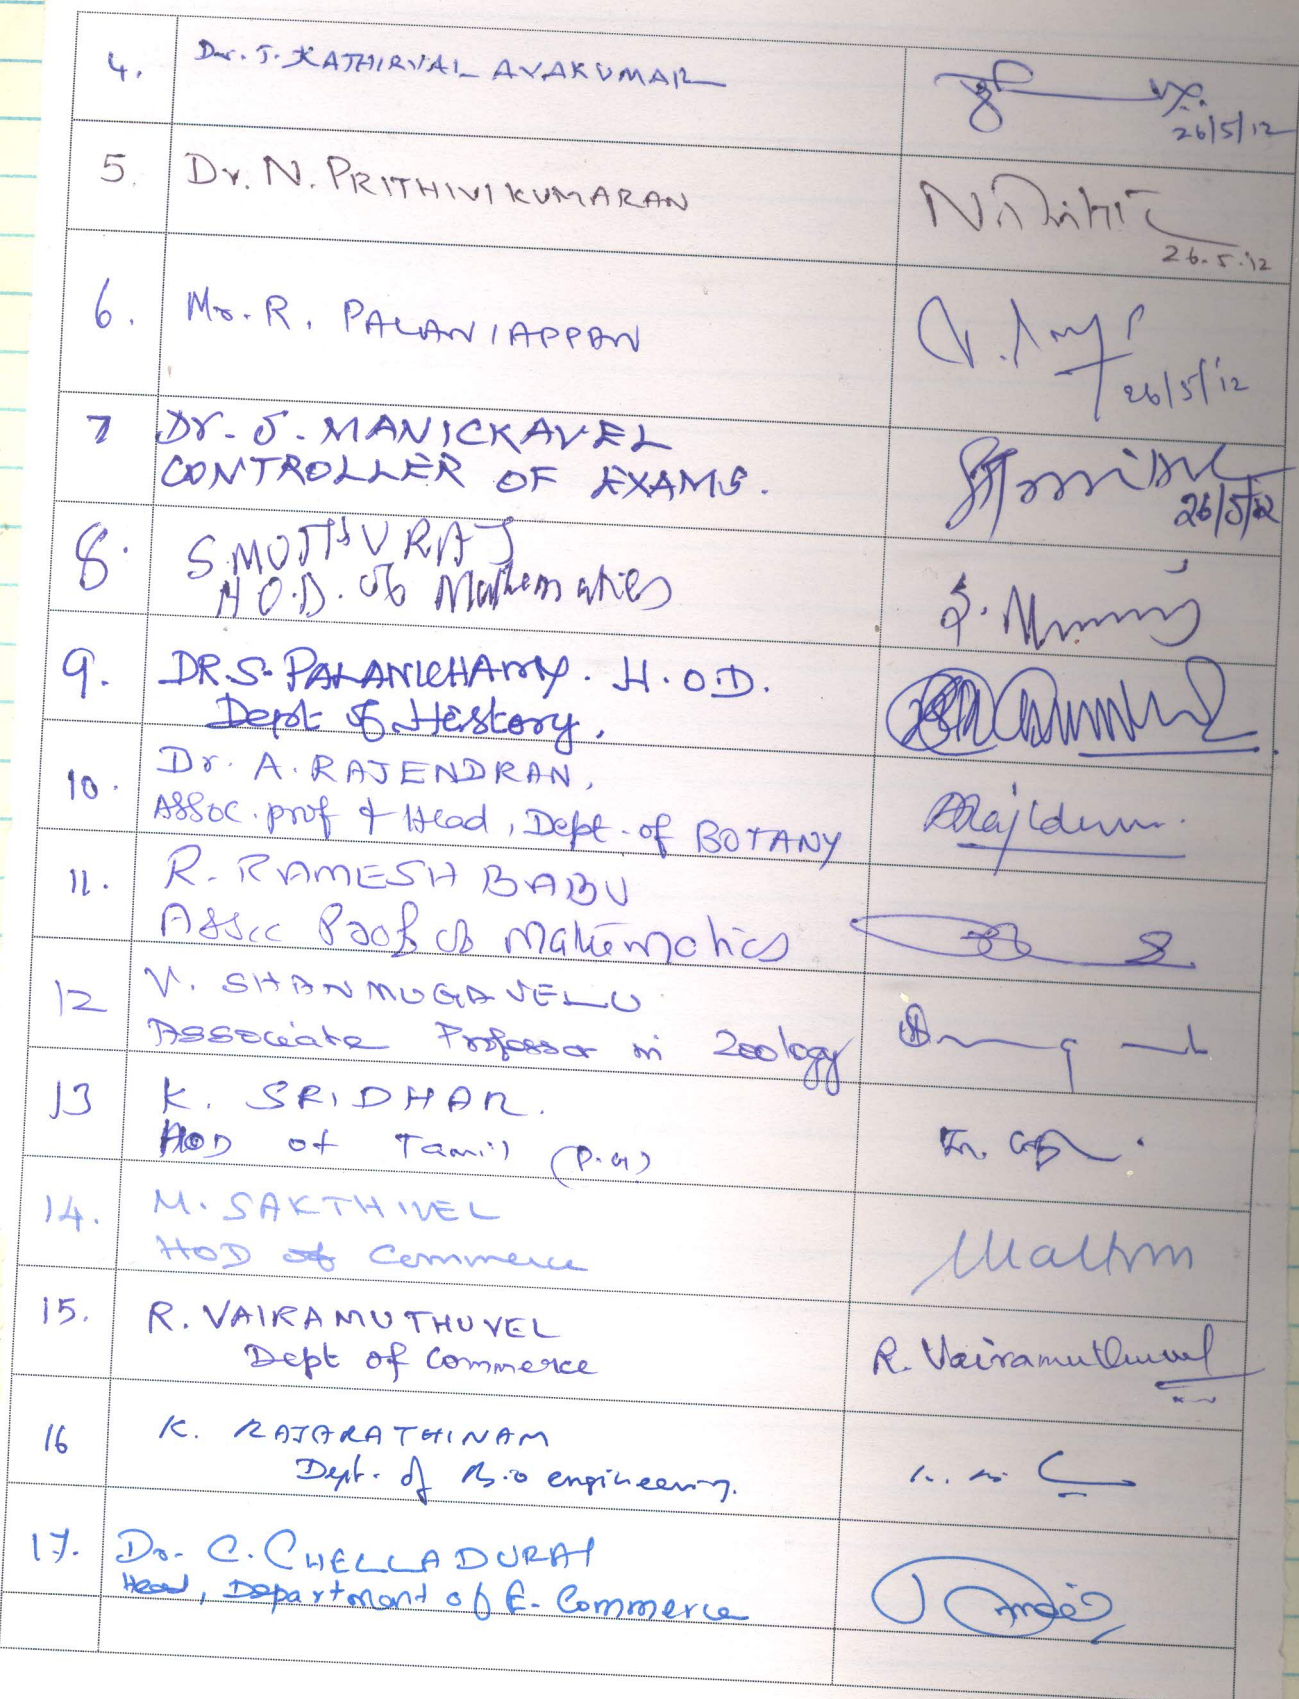 4. Dr. J. KATHIRVAL AVAKUMAR
26/5/12
5. Dr. N. PRITHIVIKUMARAN
26.5.12
6. Mr. R. PALANIAPPAN
26/5/12
7 Dr. S. MANICKAVEL
CONTROLLER OF EXAMS.
26/5/12
8. S. MUTHURAJ
H.O.D. of Mathematics
9. DR.S. PALANICHAMY. H.O.D.
Dept of History.
10. Dr. A. RAJENDRAN,
Assoc. prof & Head, Dept. of BOTANY
11. R. RAMESH BABU
Assoc Prof of Mathematics
12 V. SHANMUGAVELU
Associate Professor in Zoology
13 K. SRIDHAR.
HOD of Tamil (P.G)
14. M. SAKTHIVEL
HOD of Commerce
15. R. VAIRAMUTHUVEL R. Vairamuthuvel
Dept of Commerce
16 K. RAJARATHINAM
Dept. of Bio engineering.
17. Dr. C. CHELLADURAI
Head, Department of E. Commerce